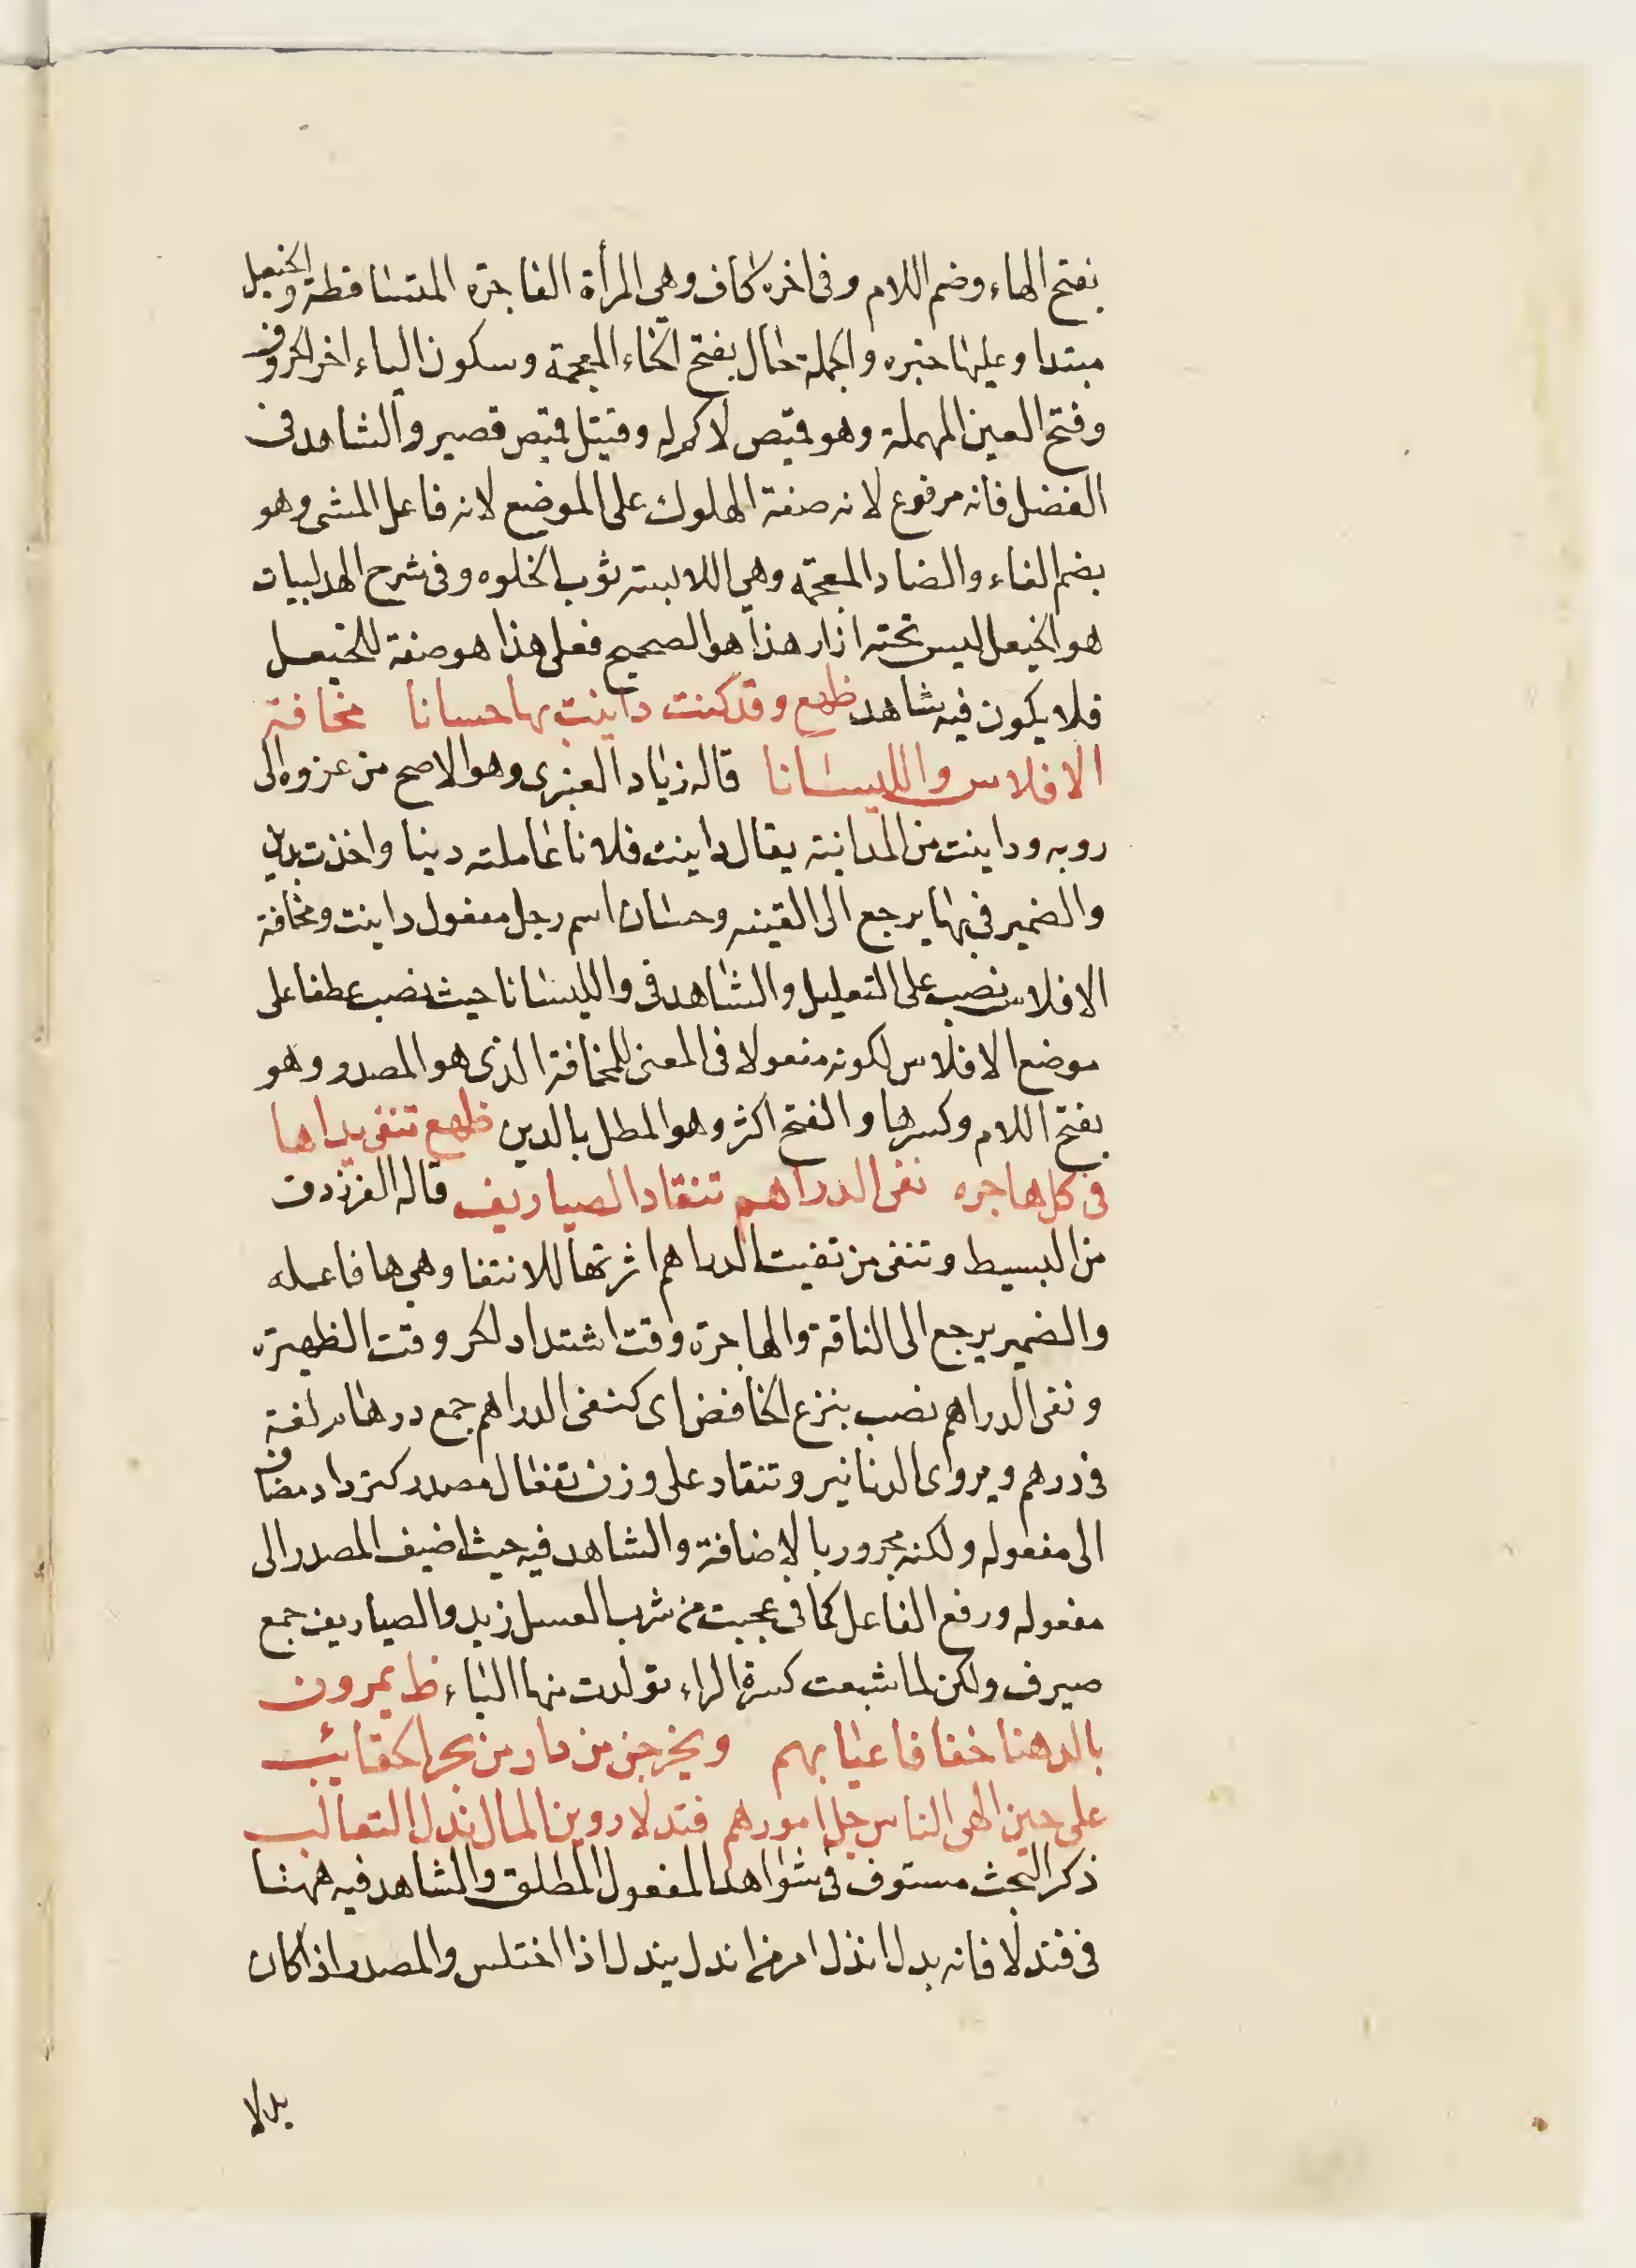 بفتح الهاء وضم اللام وفى اخره كاف وهي المرأة الفاجرة المتساقطة والخيعل
مبتدا وعليها خبره والجملة حال بفتح الخاء المعجمة وسكون الياء اخر الحروف
وفتح العين المهملة وهو قميص لا كم له وقيل قميص قصير والشاهد فى
الفضل فانه مرفوع لانه صفة الهلوك على الموضع لانه فاعل المشى وهو
بضم الفاء والضاد المعجمة وهي اللابسة ثوب الخلوه وفى شرح الهدلبيات
هو الخيعل ليس تحته ازار هذا هو الصحيح فعلى هذا هو صفة للخيعل
فلا يكون فيه شاهد ظهع وقد كنت داينت بها حسانا مخافة
الافلاس والليسانا قاله زياد العنبرى وهو الاصح من عزوه الى
روبه وداينت من المداينة يقال داينت فلانا عاملته دينا واخذت بدين
والضمير فى بها يرجع الى القينه وحسان اسم رجل مفعول داينت ومخافة
الافلاس نصب على التعليل والشاهد فى والليسانا حيث نصب عطفا على
موضع الافلاس لكونه مفعولا فى المعنى للمخافة الذى هو المصدر وهو
بفتح اللام وكسرها والفتح اكثر وهو المطل بالدين ظهع تنفى يداها
فى كل هاجره نفى الدراهم تنقاد الصياريف قاله الفرزدق
من البسيط وتنفى من نفيت الدراهم اثرتها للانتقا وهي ها فاعله
والضمير يرجع الى الناقة والهاجرة وقت اشتداد الحر وقت الظهيرة
ونفى الدراهم نصب بنزع الخافض اى كنفى الدراهم جمع درهام لغة
فى درهم ويروى الدنانير وتنقاد على وزن تفعال مصدر كترداد مضاف
الى مفعوله ولكنه مجرور بالاضافة والشاهد فيه حيث اضيف المصدر الى
مفعوله ورفع الفاعل كما فى عجبت من شرب العسل زيد والصياريف جمع
صيرف ولكن لما شبعت كسرة الراء تولدت منها الياء ظ يمرون
بالدهنا خفافا عيابهم ويخرجن من دارين بجر الحقائب
على حين الهى الناس جل امورهم فندلا زريق المال ندل الثعالب
ذكر البحث مستوف فى شواهد المفعول المطلق والشاهد فيه ههنا
فى فندلا فانه بدل اندل امر من ندل يندل اذا اختلس والمصدر اذا كان
بدلا